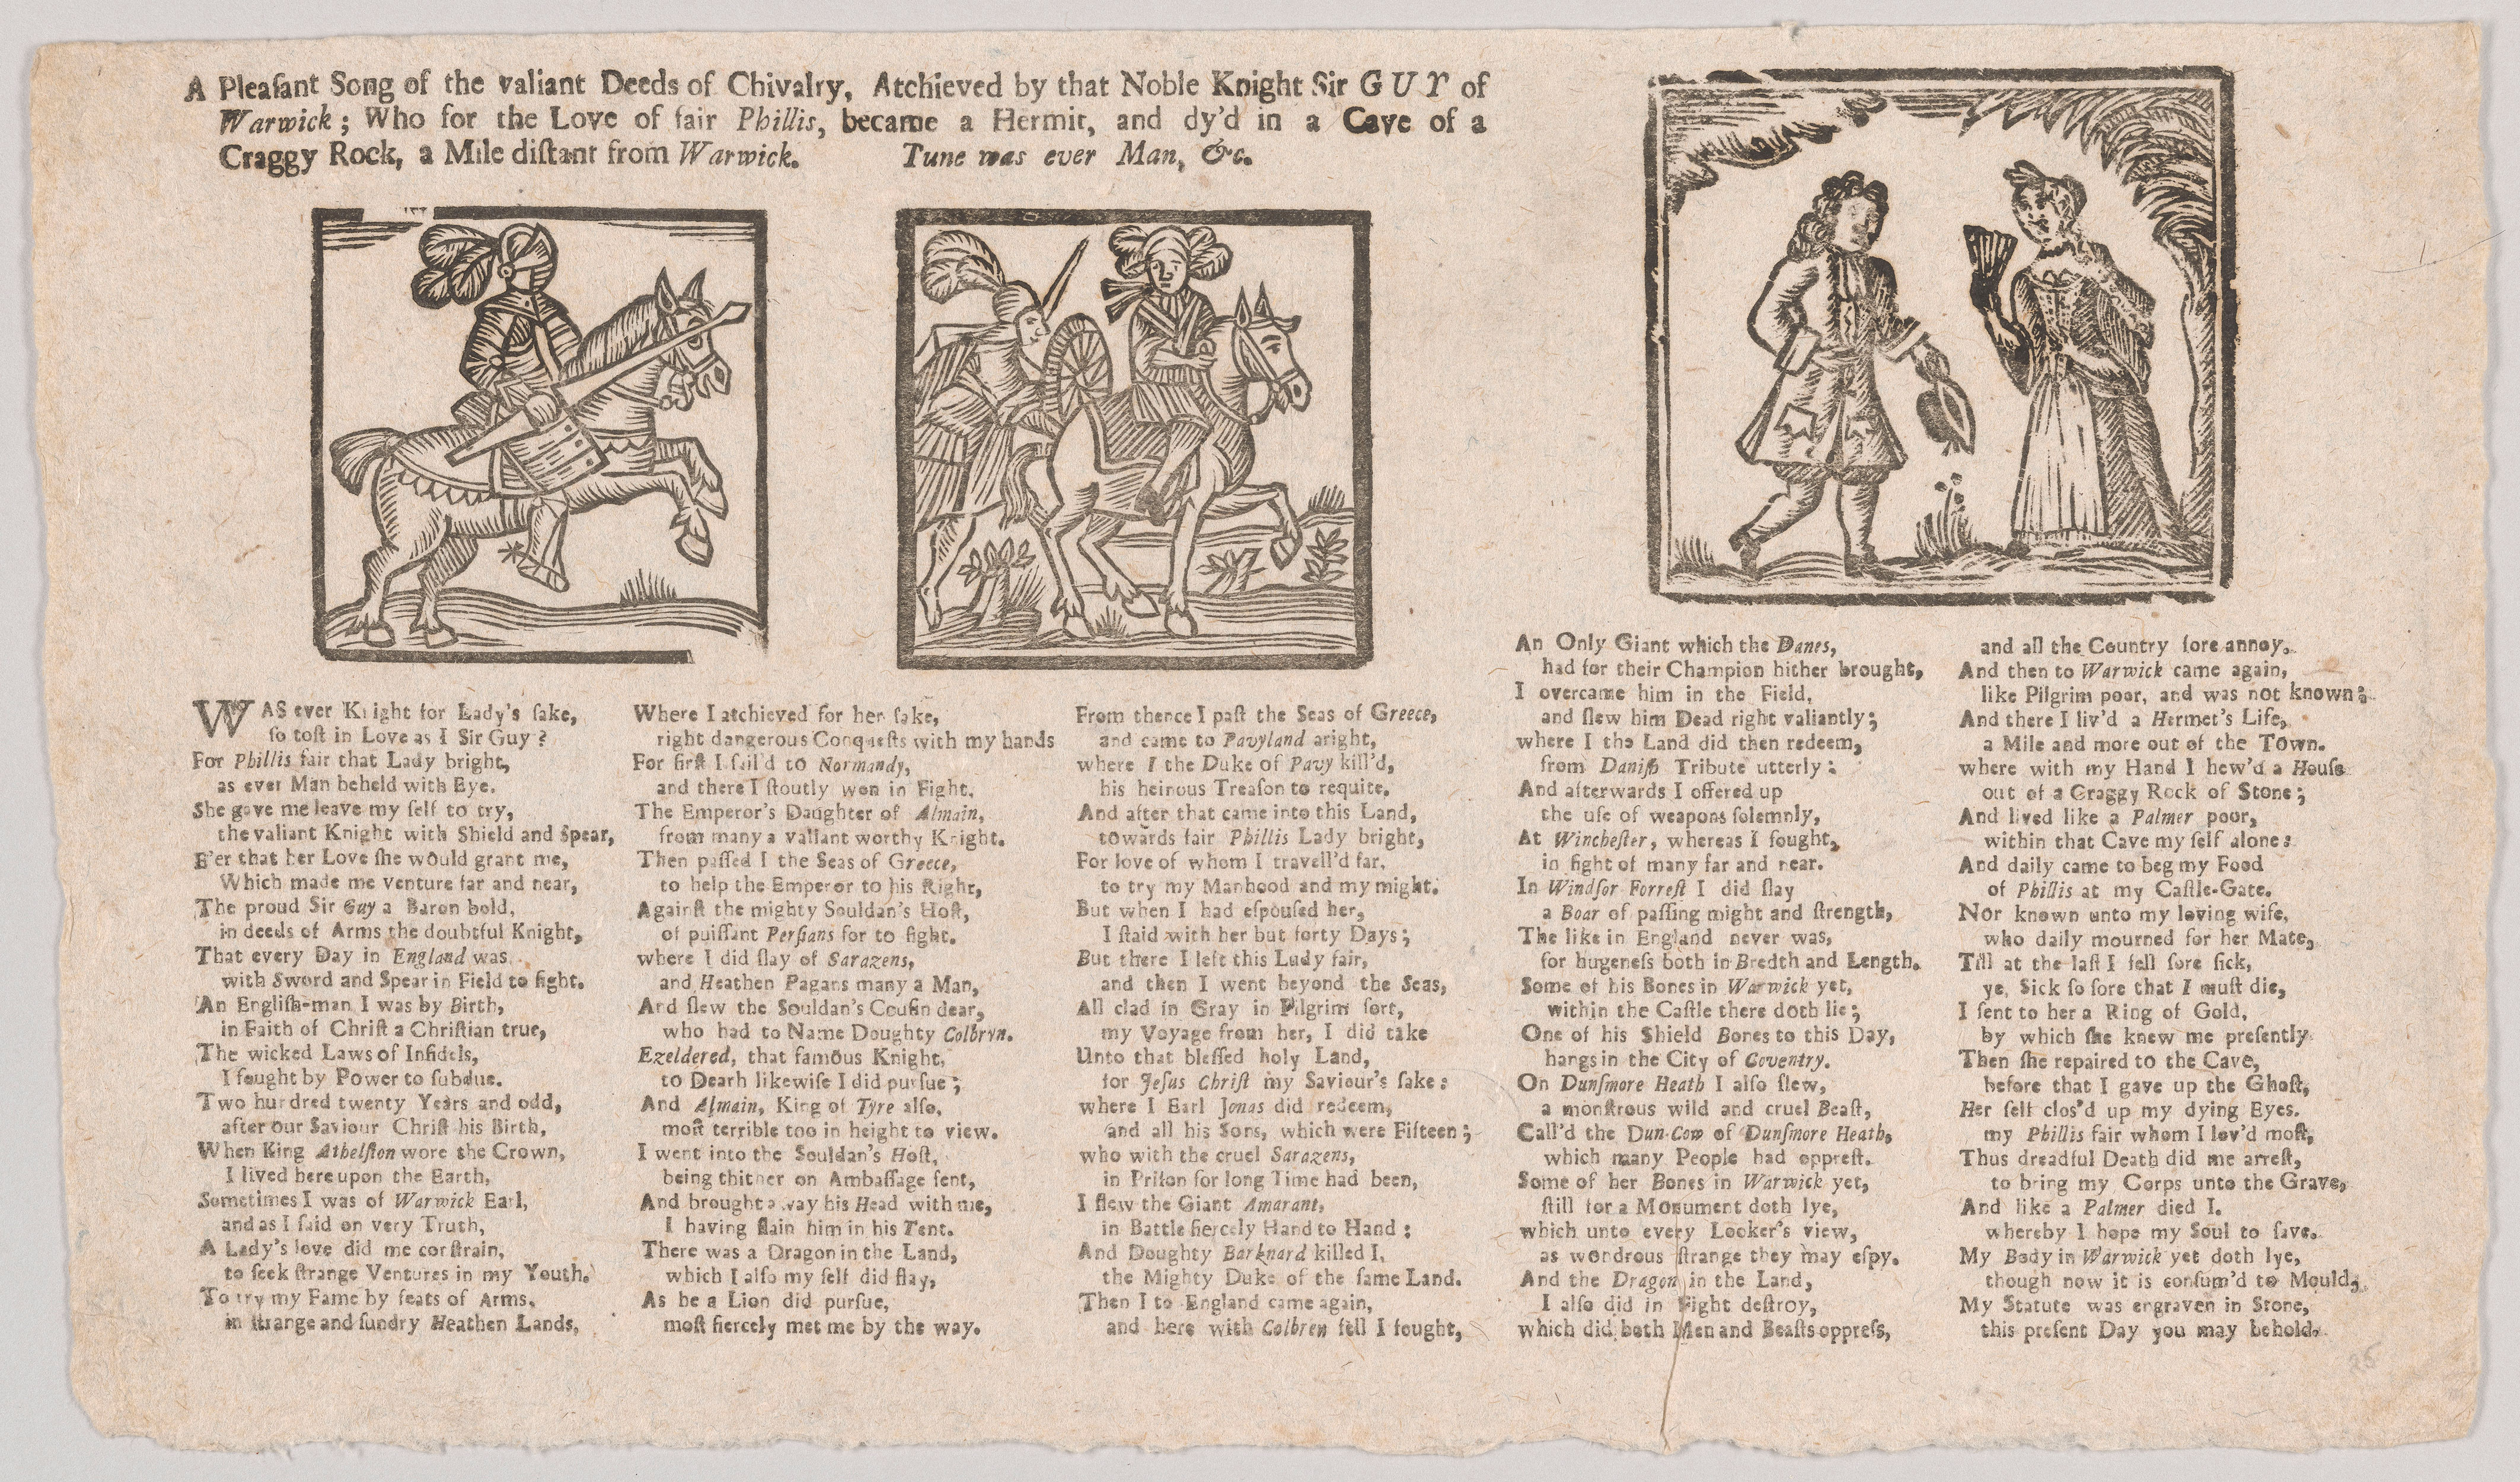 A Pleaſant Song of the valiant Deeds of Chivalry, Atchieved by that Noble Knight Sir GUY of
Warwick; Who for the Love of fair Phillis, became a Hermit, and dy'd in a Cave of a
Craggy Rock, a Mile diſtant from Warwick. Tune was ever Man, &c.
WAS ever Knight for Lady's ſake,
ſo toſt in Love as I Sir Guy?
For Phillis fair that Lady bright,
as ever Man beheld with Eye.
She gave me leave my ſelf to try,
the valiant Knight with Shield and Spear,
E'er that her Love ſhe would grant me,
Which made me venture far and near,
The proud Sir Guy a Baron bold,
in deeds of Arms the doubtful Knight,
That every Day in England was
with Sword and Spear in Field to fight.
An Engliſh-man I was by Birth,
in Faith of Chriſt a Chriſtian true,
The wicked Laws of Infidels,
I fought by Power to ſubdue.
Two hundred twenty Years and odd,
after our Saviour Chriſt his Birth,
When King Athelſton wore the Crown,
I lived here upon the Earth,
Sometimes I was of Warwick Earl,
and as I ſaid on very Truth,
A Lady's love did me conſtrain,
to ſeek ſtrange Ventures in my Youth.
To try my Fame by feats of Arms.
in ſtrange and ſundry Heathen Lands,
Where I atchieved for her ſake,
right dangerous Conqueſts with my hands
For firſt I ſail'd to Normandy,
and there I ſtoutly won in Fight,
The Emperor's Daughter of Almain,
from many a valiant worthy Knight.
Then paſſed I the Seas of Greece,
to help the Emperor to his Right,
Againſt the mighty Souldan's Hoſt,
of puiſſant Perſians for to fight.
where I did ſlay of Sarazens,
and Heathen Pagans many a Man,
And ſlew the Souldan's Couſin dear,
who had to Name Doughty Colbryn.
Ezeldered, that famous Knight,
to Dearh likewiſe I did purſue;
And Almain, King of Tyre alſo,
moſt terrible too in height to view.
I went into the Souldan's Hoſt,
being thither on Ambaſſage ſent,
And brought away his Head with me,
I having ſlain him in his Tent.
There was a Dragon in the Land,
which I alſo my ſelf did ſlay,
As be a Lion did purſue,
moſt fiercely met me by the way.
From thence I paſt the Seas of Greece,
and came to Pavyland aright,
where I the Duke of Pavy kill'd,
his heinous Treaſon to requite.
And after that came into this Land,
towards fair Phillis Lady bright,
For love of whom I travell'd far,
to try my Manhood and my might.
But when I had eſpouſed her,
I ſtaid with her but forty Days;
But there I left this Lady fair,
and then I went beyond the Seas,
All clad in Gray in Pilgrim ſort,
my Voyage from her, I did take
Unto that bleſſed holy Land,
for Jeſus Chriſt my Saviour's ſake:
where I Earl Jonas did redeem,
and all his Sons, which were Fifteen;
who with the cruel Sarazens,
in Priſon for long Time had been,
I ſlew the Giant Amarant,
in Battle fiercely Hand to Hand:
And Doughty Barknard killed I,
the Mighty Duke of the ſame Land.
Then I to England came again,
and here with Colbren fell I fought,
An Only Giant which the Danes,
had for their Champion hither brought,
I overcame him in the Field,
and ſlew him Dead right valiantly;
where I the Land did then redeem,
from Daniſh Tribute utterly:
And afterwards I offered up
the uſe of weapons ſolemnly,
At Wincheſter, whereas I fought,
in fight of many far and near.
In Windſor Forreſt I did ſlay
a Boar of paſſing might and ſtrength,
The like in England never was,
for hugeneſs both in Bredth and Length.
Some of his Bones in Warwick yet,
within the Caſtle there doth lie;
One of his Shield Bones to this Day,
hangs in the City of Coventry.
On Dunſmore Heath I alſo ſlew,
a monſtrous wild and cruel Beaſt,
Call'd the Dun-Cow of Dunſmore Heath,
which many People had oppreſt.
Some of her Bones in Warwick yet,
ſtill for a Monument doth lye,
which unto every Looker's view,
as wondrous ſtrange they may eſpy.
And the Dragon in the Land,
I alſo did in Fight deſtroy,
which did both Men and Beaſts oppreſs,
and all the Country ſore annoy.
And then to Warwick came again,
like Pilgrim poor, and was not known;
And there I liv'd a Hermet's Life,
a Mile and more out of the Town.
where with my Hand I hew'd a Houſe
out of a Craggy Rock of Stone;
And lived like a Palmer poor,
within that Cave my ſelf alone:
And daily came to beg my Food
of Phillis at my Caſtle-Gate.
Nor known unto my loving wife,
who daily mourned for her Mate,
Till at the laſt I fell ſore ſick,
ye, Sick ſo ſore that I muſt die,
I ſent to her a Ring of Gold,
by which ſhe knew me preſently
Then ſhe repaired to the Cave,
before that I gave up the Ghoſt,
Her ſelf clos'd up my dying Eyes.
my Phillis fair whom I lov'd moſt,
Thus dreadful Death did me arreſt,
to bring my Corps unto the Grave,
And like a Palmer died I.
whereby I hope my Soul to ſave.
My Body in Warwick yet doth lye,
though now it is conſum'd to Mould,
My Statute was engraven in Stone,
this preſent Day you may behold.
26